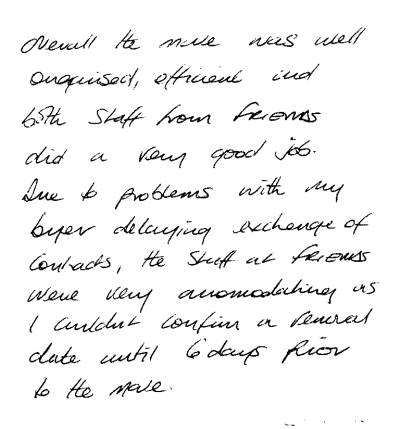 Overall the move was well
organised, efficient and
both staff from Friends
did a very good job.
Due to problems with my
buyer delaying exchange of
contracts, the staff at Friends
were very accomodating as
I couldn't confirm a removal
date until 6 days prior
to the move.